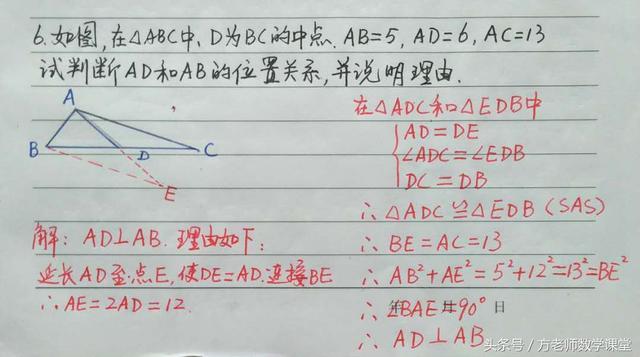 6.如图,在△ABC中、D为BC的中点.AB=5,AD=6,AC=13
试判断AD和AB的位置关系,并说明理由.
A
B
D
C
E
解:AD⊥AB.理由如下:
延长AD至点E,使DE=AD.连接BE
∴AE=2AD=12.
在△ADC和△EDB中
AD=DE
∠ADC=∠EDB
DC=DB
∴△ADC≌△EDB(SAS)
∴BE=AC=13
∴AB²+AE²=5²+12²=13²=BE²
∴∠BAE=90°
年 月 日
∴AD⊥AB
头条号/方老师数学课堂